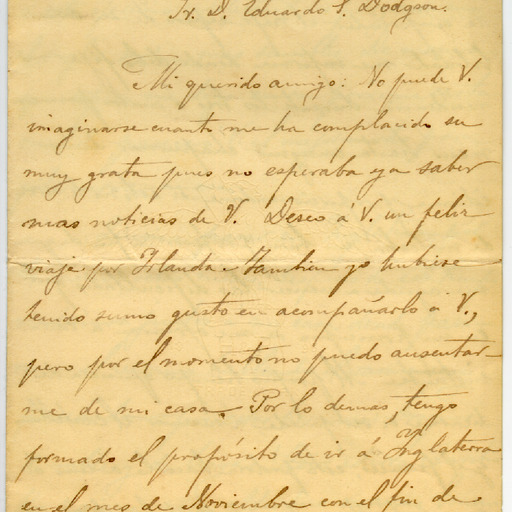 Sr. D. Eduardo S. Dodgson.
Mi querido amigo: No puede V.
imaginarse cuanto me ha complacido su
muy grata pues no esperaba ya saber
mas noticias de V. Deseo á V. un feliz
viaje por Irlanda. Tambien yo hubiese
tenido sumo gusto en acompañarlo á V.,
pero por el momento no puedo ausentar-
me de mi casa. Por lo demas, tengo
formado el propósito de ir á Ynglaterra
en el mes de Noviembre con el fin de